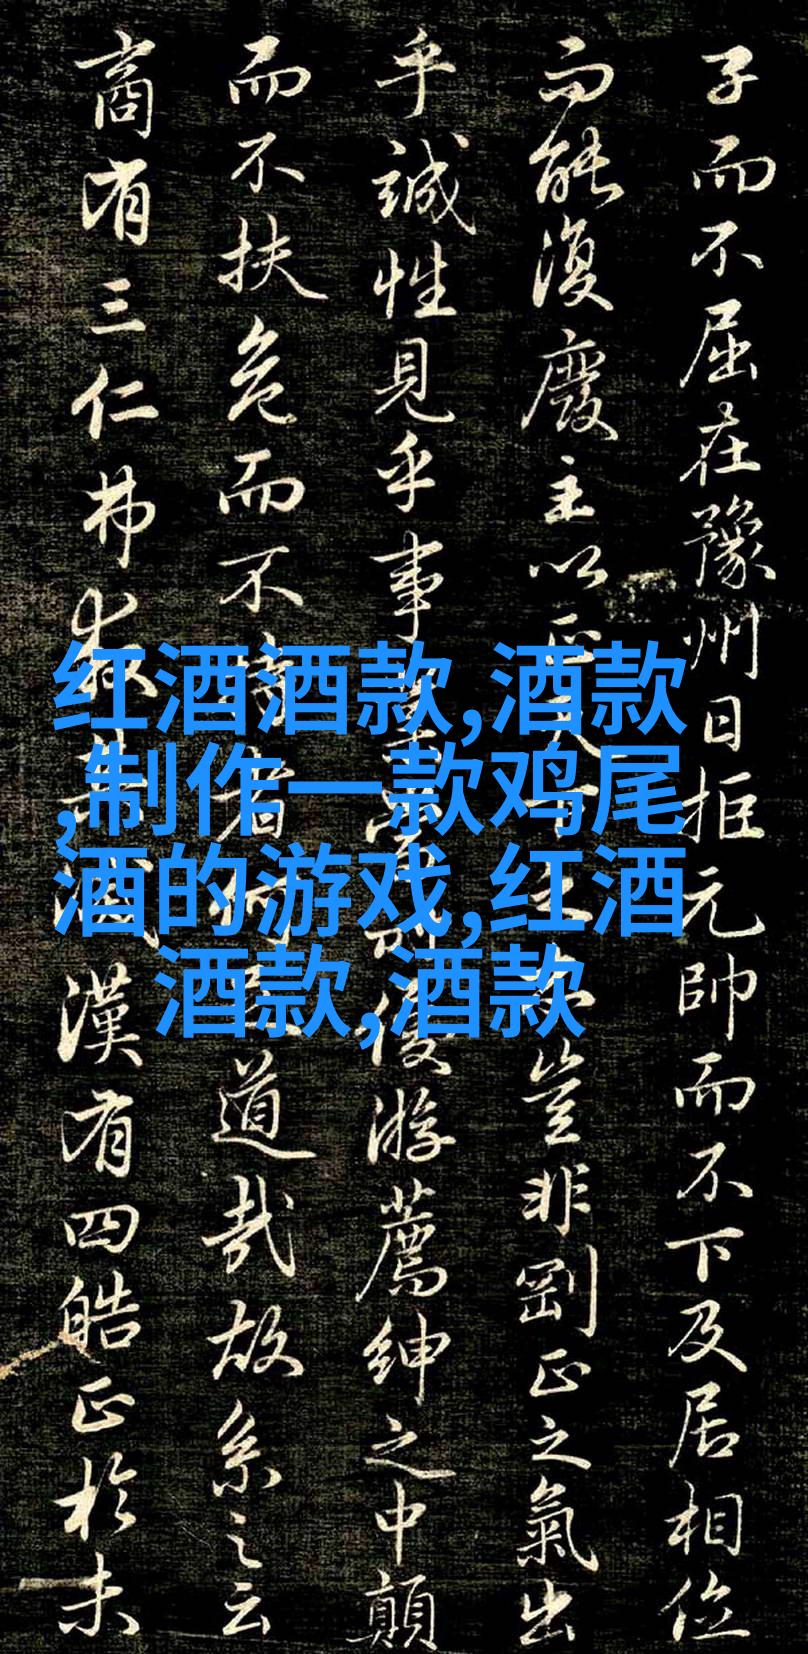 子而不屈在豫州日拒元帥而不下及居相位
而能復廢主以正天下之豈非剛正之氣出
乎誠性見乎事業優游薦紳之中顛
而不扶危而不持者何足道哉故系之云
商有三仁弗救其滅漢有四皓正於未
红酒酒款,酒款
,制作一款鸡尾
酒的游戏,红酒
酒款,酒款